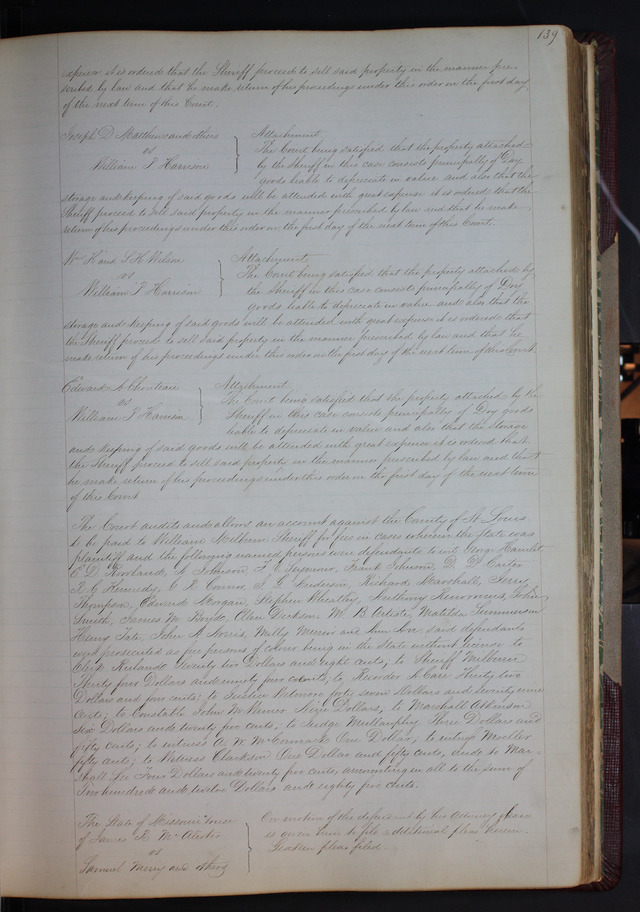 139
expense it is ordered that the Sheriff proceed to sell said property in the manner pre-
scribed by law and that he make return of his proceedings under this order on the first day
of the next term of this Court.
Joseph D Matthews and others
vs
William F Harrison
Attachment
The Court being satisfied that the property attached
by the Sheriff in this case consists principally of Dry
goods liable to depreciate in value and also that the
storage and keeping of said goods will be attended with great expense it is ordered that the
Sheriff proceed to sell said property in the manner prescribed by law and that he make
return of his proceedings under this order on the first day of the next term of this Court.
Wm K and S H Wilson
vs
William F Harrison
Attachment
The Court being satisfied that the property attached by
the Sheriff in this case consists principally of Dry
goods liable to depreciate in value and also that the
storage and keeping of said goods will be attended with great expense it is ordered that
the Sheriff proceed to sell said property in the manner prescribed by law and that he
make return of his proceedings under this order on the first day of the next term of this Court.
Edward A Chouteau
vs
William F Harrison
Attachment
The Court being satisfied that the property attached by the
Sheriff in this case consists principally of Dry goods
liable to depreciate in value and also that the storage
and keeping of said goods will be attended with great expense it is ordered that
the Sheriff proceed to sell said property in the manner prescribed by law and that
he make return of his proceedings under this order on the first day of the next term
of this Court
The Court audits and allows an account against the County of St. Louis
to be paid to William Milburn Sheriff for fees in cases wherein the State was
plaintiff and the following named persons were defendants to wit George Hamlet
E D Rowland, A Johnson, Frank Johnson, D. P. Carter
Kennedy, Connor, S. L. Anderson, Richard Marshall, Jerry
Thompson, Edward Morgan, Stephen Wheatley, Anthony John
Smith, James M. Boyd, Allen Dickson M. B. Artiste, Matilda Summers
Henry Tate, John A Norris, Milly and Ann Love said defendants
were prosecuted as free persons of colour being in the State without license to
Clerk Ruland Twenty two Dollars and eight cents, to Sheriff Milburn
Thirty four Dollars and ninety four cents; to Recorder A Carr thirty two
Dollars and four cents; to Justice forty seven Dollars and seventy nine
Cents, to Constable John W Dollars, to Marshall Atkinson
Six Dollars and twenty five cents, to Judge Mullanphy Three Dollars and
fifty cents; to witness A. W. McCormack One Dollar, to witness
fifty cents; to Witness Clarkson One Dollar and fifty cents, and to Mar-
shall Four Dollars and twenty five cents, amounting in all to the sum of
Two hundred and twelve Dollars and eighty five cents.
The State of Missouri to use
of James R. McAlister
vs
Samuel Merry and others
On motion of the defendants by their attorney leave
is given him to file additional pleas herein.
pleas filed.